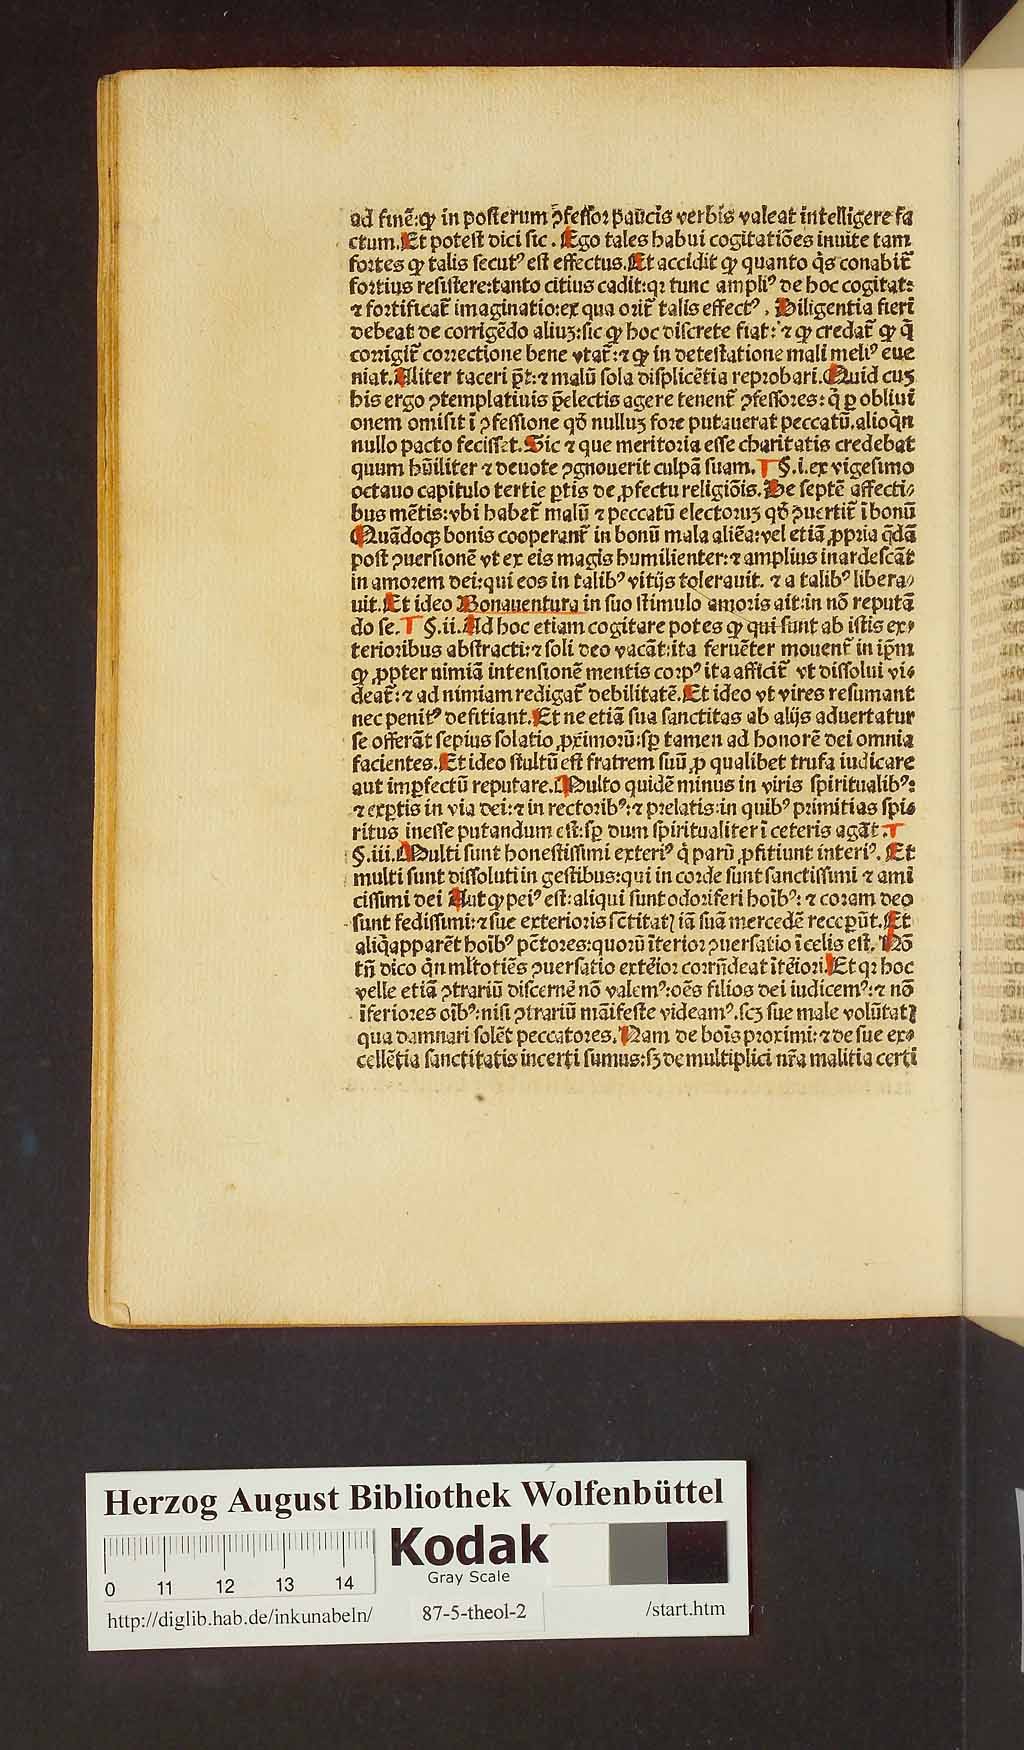 ad finē:ꝙ in posterum ↄfessor paucis verbis valeat intelligere fa
ctum. Et potest dici sic . Ego tales habui cogitatiōes inuite tam
fortes ꝙ talis secutꝰ est effectus. Et accidit ꝙ quanto q̄s conabit̄
fortius resistere:tanto citius cadit:qꝛ tunc ampliꝰ de hoc cogitat:
⁊ fortificat̄ imaginatio:ex qua orit̄ talis effectꝰ . Diligentia fieri
debeat de corrigēdo aliuꝫ:sic ꝙ hoc discrete fiat: ⁊ ꝙ credat̄ ꝙ q̄
corrigit̄ correctione bene vtat̄:⁊ ꝙ in detestatione mali meliꝰ eue
niat. Aliter taceri p̄t:⁊ malū sola displicētia reprobari. Quid cuꝫ
his ergo ↄtemplatiuis p̄electis agere tenent̄ ↄfessores: q̄ ꝑ obliui
onem omisit ī ↄfessione qđ nulluꝫ fore putauerat peccatū. alioq̄n
nullo pacto fecisset. Sic ⁊ que meritoria esse charitatis credebat
quum hūiliter ⁊ deuote ↄgnouerit culpā suam. §.i. ex vigesimo
octauo capitulo tertie ꝑtis de ꝓfectu religiōis. De septē affecti⸗
bus mētis:vbi habet̄ malū ⁊ peccatū electoruꝫ qđ ↄuertit̄ ī bonū
Quādoqꝫ bonis cooperant̄ in bonū mala aliēa:vel etiā ꝓpria q̄dā
post ↄuersionē vt ex eis magis humilienter:⁊ amplius inardescāt
in amorem dei:qui eos in talibꝰ vitijs tolerauit. ⁊ a talibꝰ libera⸗
uit. Et ideo Bonauentura in suo stimulo amoris ait:in nō reputā
do se. §.ii. Ad hoc etiam cogitare potes ꝙ qui sunt ab istis ex⸗
terioribus abstracti:⁊ soli deo vacāt:ita feruēter mouent̄ in ip̄m
ꝙ ꝓpter nimiā intensionē mentis corpꝰ ita afficit̄ vt dissolui vi⸗
deat̄:⁊ ad nimiam redigat̄ debilitatē. Et ideo vt vires resumant
nec penitꝰ defitiant. Et ne etiā sua sanctitas ab alijs aduertatur
se offerāt sepius solatio ꝓximorū:sꝑ tamen ad honorē dei omnia
facientes. Et ideo stultū est fratrem suū ꝓ qualibet trufa iudicare
aut imꝑfectū reputare. Multo quidē minus in viris spiritualibꝰ:
⁊ exꝑtis in via dei:⁊ in rectoribꝰ:⁊ prelatis:in quibꝰ primitias spi⸗
ritus inesse putandum est:sꝑ dum spiritualiter ī ceteris agāt .
§.iii. Multi sunt honestissimi exteriꝰ q̄ parū ꝓfitiunt interiꝰ. Et
multi sunt dissoluti in gestibus:qui in corde sunt sanctissimi ⁊ ami
cissimi dei Aut ꝙ peiꝰ est:aliqui sunt odoriferi hoībꝰ: ⁊ coram deo
sunt fedissimi:⁊ sue exterioris sc̄titatꝭ iā suā mercedē receꝑūt. Et
aliq̄ apparēt hoībꝰ pc̄tores:quorū īterior ↄuersatio ī celis est. Nō
tn̄ dico q̄n ml̄totiēs ↄuersatio extēior corrn̄deat ītēiori. Et qꝛ hoc
velle etiā ↄtrariū discernē nō valemꝰ:oēs filios dei iudicemꝰ:⁊ nō
īferiores oībꝰ:nisi ↄtrariū māifeste videamꝰ. scꝫ sue male volūtatꝭ
qua damnari solēt peccatores. Nam de bois proximi:⁊ de sue ex⸗
cellētia sanctitatis incerti sumus:sꝫ de multiplici nr̄a malitia certi
Herzog August Bibliothek Wolfenbüttel
Kodak
Gray Scale
0 11 12 13 14
http://diglib.hab.de/inkunabeln/ 87-5-theol-2 /start.htm